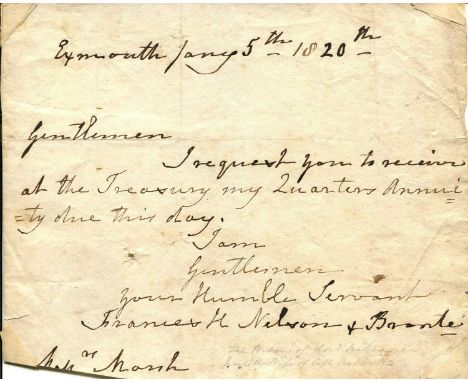 Exmouth Jany 5th 1820th
Gentlemen
I request you to receive
at the Treasury my Quarters Annui
=ty due this day.
I am
Gentlemen
your Humble Servant
Frances H Nelson & Bronte
Messrs Marsh
The Widow of